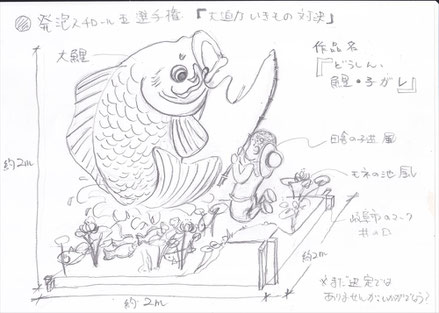 発泡スチロール王選手権『大迫力いきもの対決』
大鯉
作品名
『どうしん、
鯉・子
田舎の子供風
モネの池風
約2m
岐阜市のマーク
井の口
約2m
約2m
※まだ決定では
ありませんが